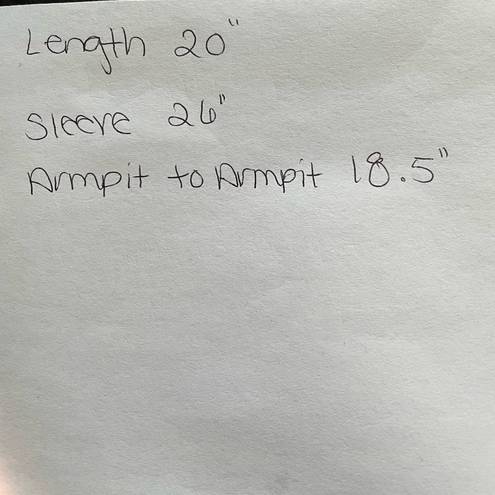 Length 20"
Sleeve 26"
Armpit to Armpit 18.5"